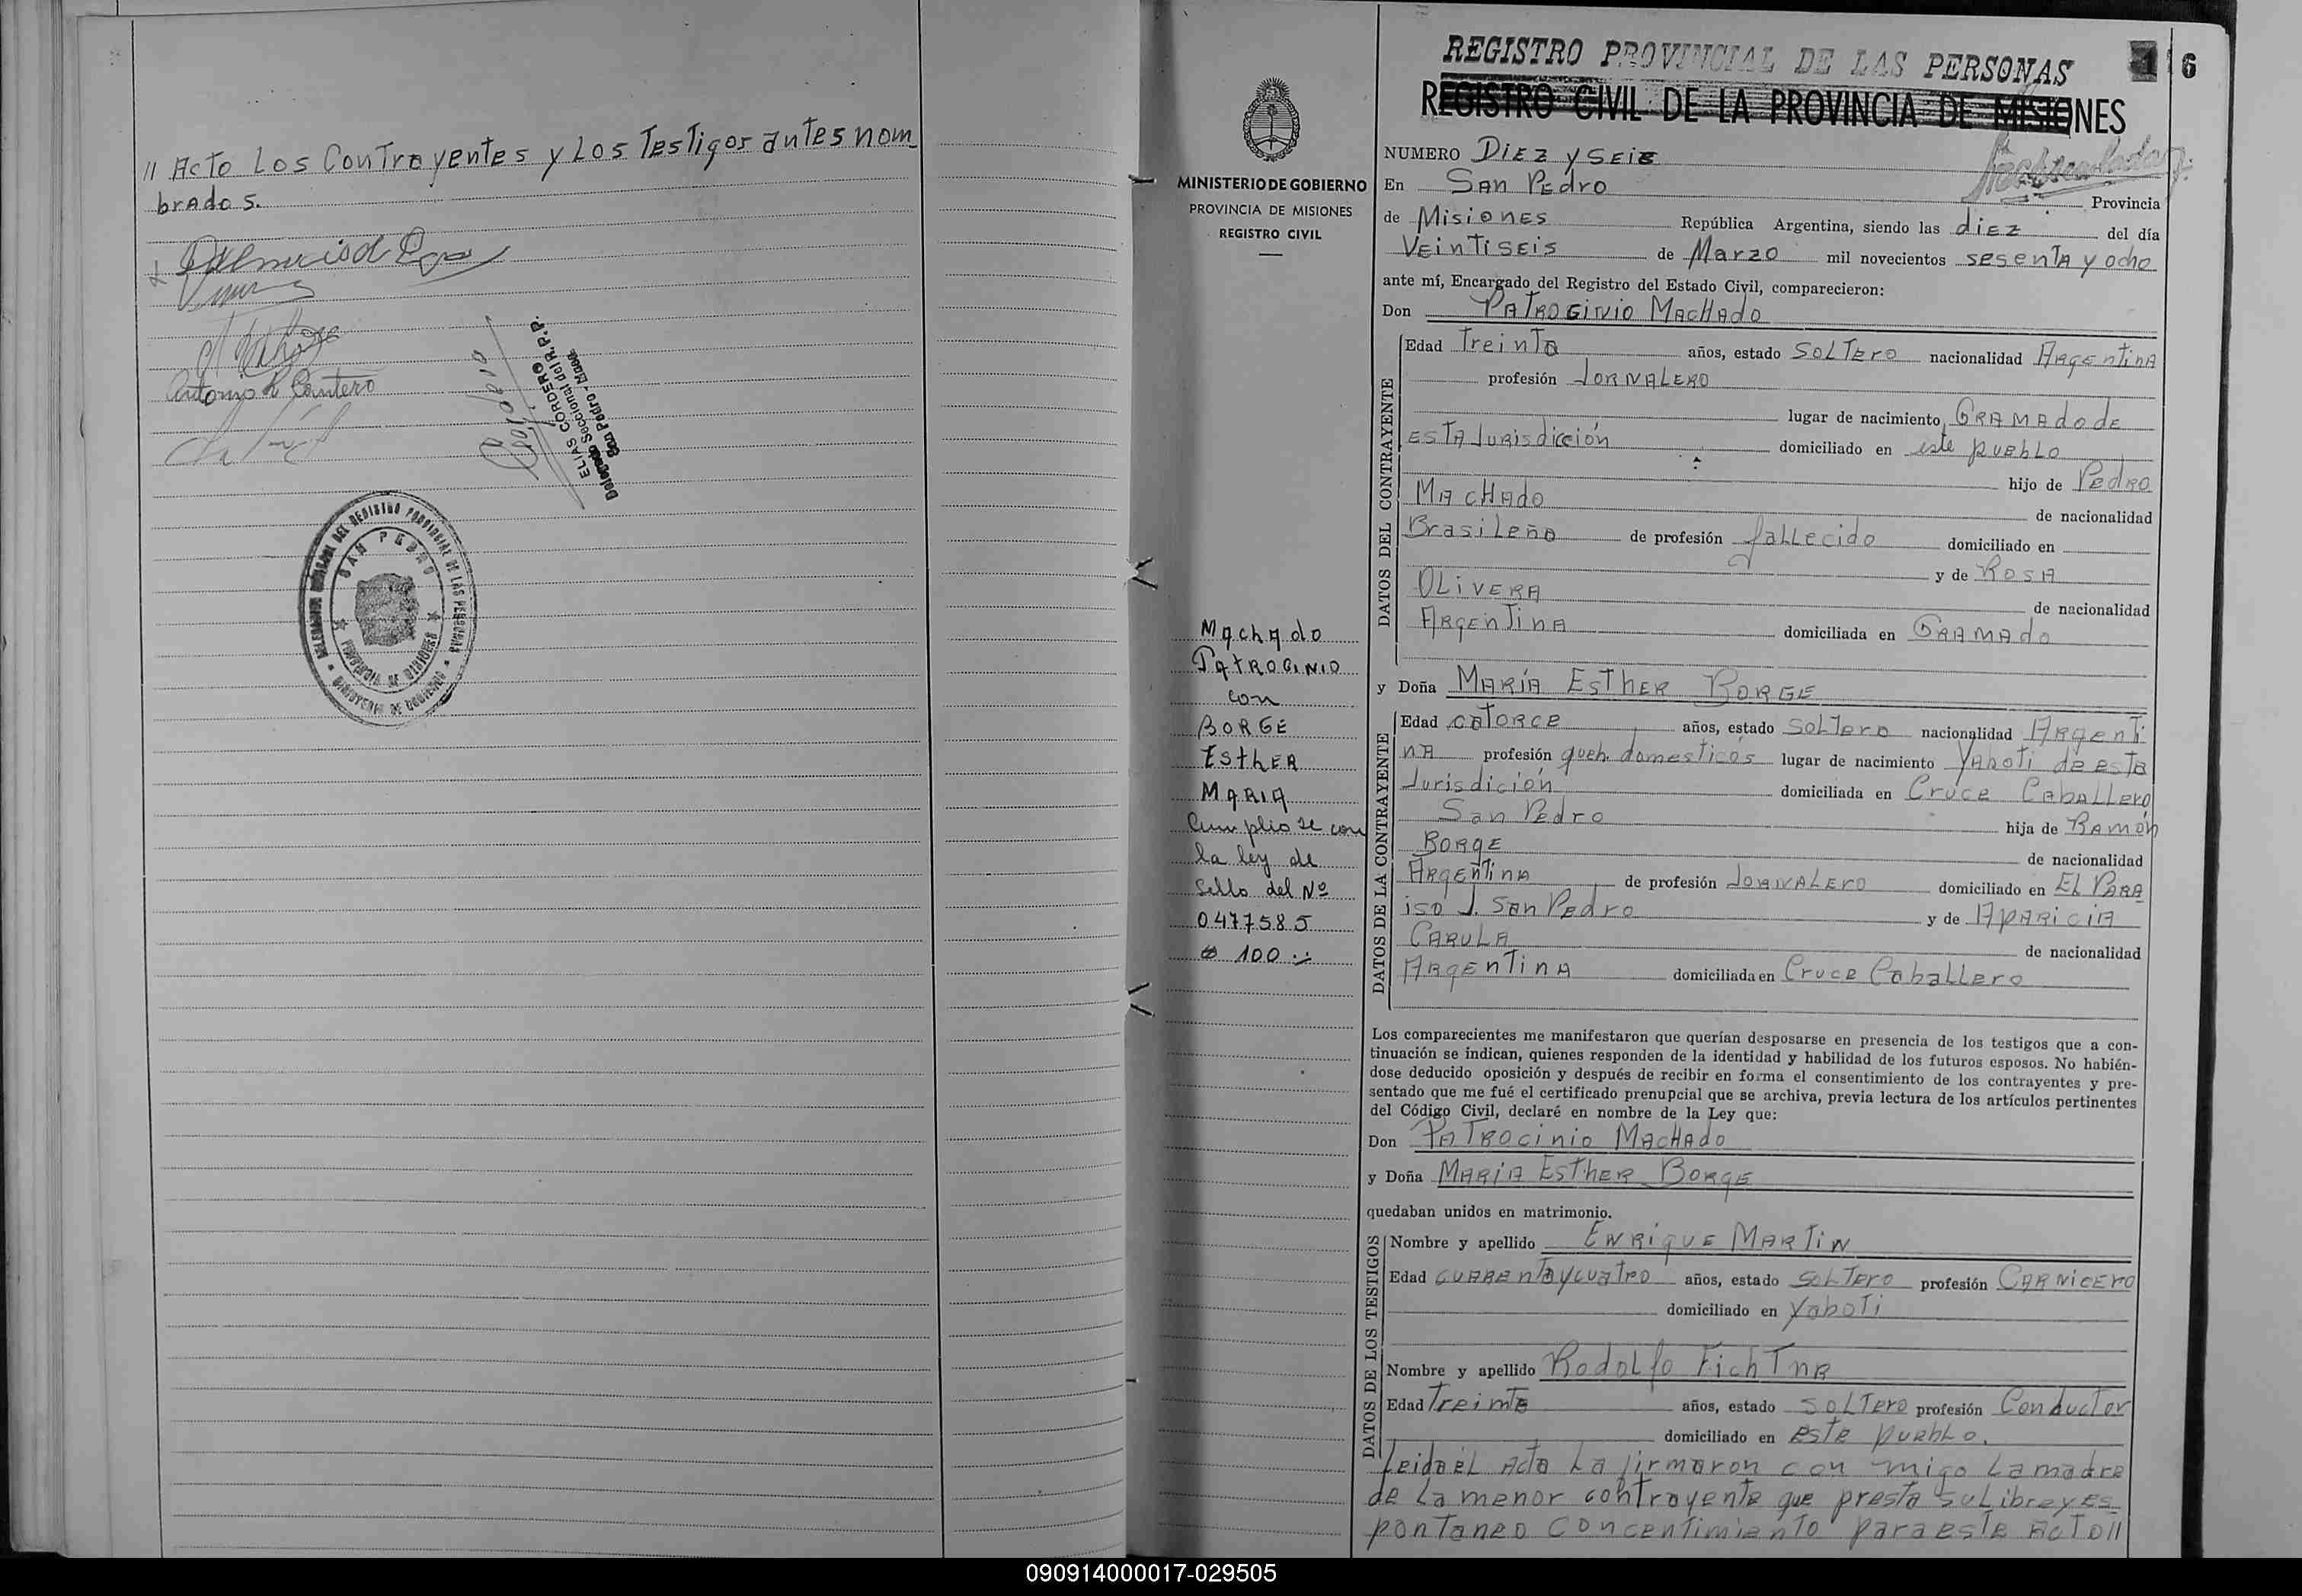 // Acto Los Contrayentes y Los Testigos antes nom
brados.
Antonio R Cantero
ELIAS CORDERO
Delegado Seccional del R.P.P.
San Pedro - Mnes.
SAN PEDRO
PROVINCIA DE MISIONES
MINISTERIO DE GOBIERNO
MINISTERIO DE GOBIERNO
PROVINCIA DE MISIONES
REGISTRO CIVIL
Machado
PATROCINIO
con
BORGE
EsthER
MARIA
Cumplio se con
la ley de
Sello del Nº
0477585
$ 100.-
REGISTRO PROVINCIAL DE LAS PERSONAS
16
REGISTRO CIVIL DE LA PROVINCIA DE MISIONES
NUMERO DiEZ y SEiS
En SAn PEdro Provincia
de MisiONES República Argentina, siendo las diEZ del día
VEintiSEis de Marzo mil novecientos sesenta y ocho
ante mí, Encargado del Registro del Estado Civil, comparecieron:
Don PATROCiNio MacHAdo
DATOS DEL CONTRAYENTE
Edad Treinta años, estado SOLTero nacionalidad ARgentinA
profesión JORNALERO
lugar de nacimiento GRAMAdo dE
ESTA Jurisdicción domiciliado en este puEbLo
hijo de PedRo
MAcHAdo de nacionalidad
BrasiLeño de profesión faLLecido domiciliado en
y de RosA
OLiVERA de nacionalidad
ARgenTinA domiciliada en GRAMAdo
y Doña MARÍA EsTHER BORGE
DATOS DE LA CONTRAYENTE
Edad catorce años, estado SOLTero nacionalidad ARgenti
nA profesión queh. domesticos lugar de nacimiento Yaboti de esta
Jurisdición domiciliada en Cruce CabaLLero
San Pedro hija de RAmón
BORgE de nacionalidad
ARgEntinA de profesión JORNALEro domiciliado en EL PARA
iso J. San Pedro y de APARiciA
CARULA de nacionalidad
ARgEnTinA domiciliada en Cruce CabaLLero
Los comparecientes me manifestaron que querían desposarse en presencia de los testigos que a con-
tinuación se indican, quienes responden de la identidad y habilidad de los futuros esposos. No habién-
dose deducido oposición y después de recibir en forma el consentimiento de los contrayentes y pre-
sentado que me fué el certificado prenupcial que se archiva, previa lectura de los artículos pertinentes
del Código Civil, declaré en nombre de la Ley que:
Don PATRocinio MAcHAdo
y Doña MARiA EsTHER BORgE
quedaban unidos en matrimonio.
DATOS DE LOS TESTIGOS
Nombre y apellido ENRiqUE MARTiN
Edad cuarentaycuatro años, estado SOLTero profesión CARNicERO
domiciliado en Yaboti
Nombre y apellido RodoLfo FichTnR
Edad Treinta años, estado SOLTero profesión Conductor
domiciliado en este puEbLo.
Leida eL Acta La firmaron con migo La madre
de La menor contrayente que presta su Libre y es
pontaneo concentimiento para este Acto //
090914000017-029505